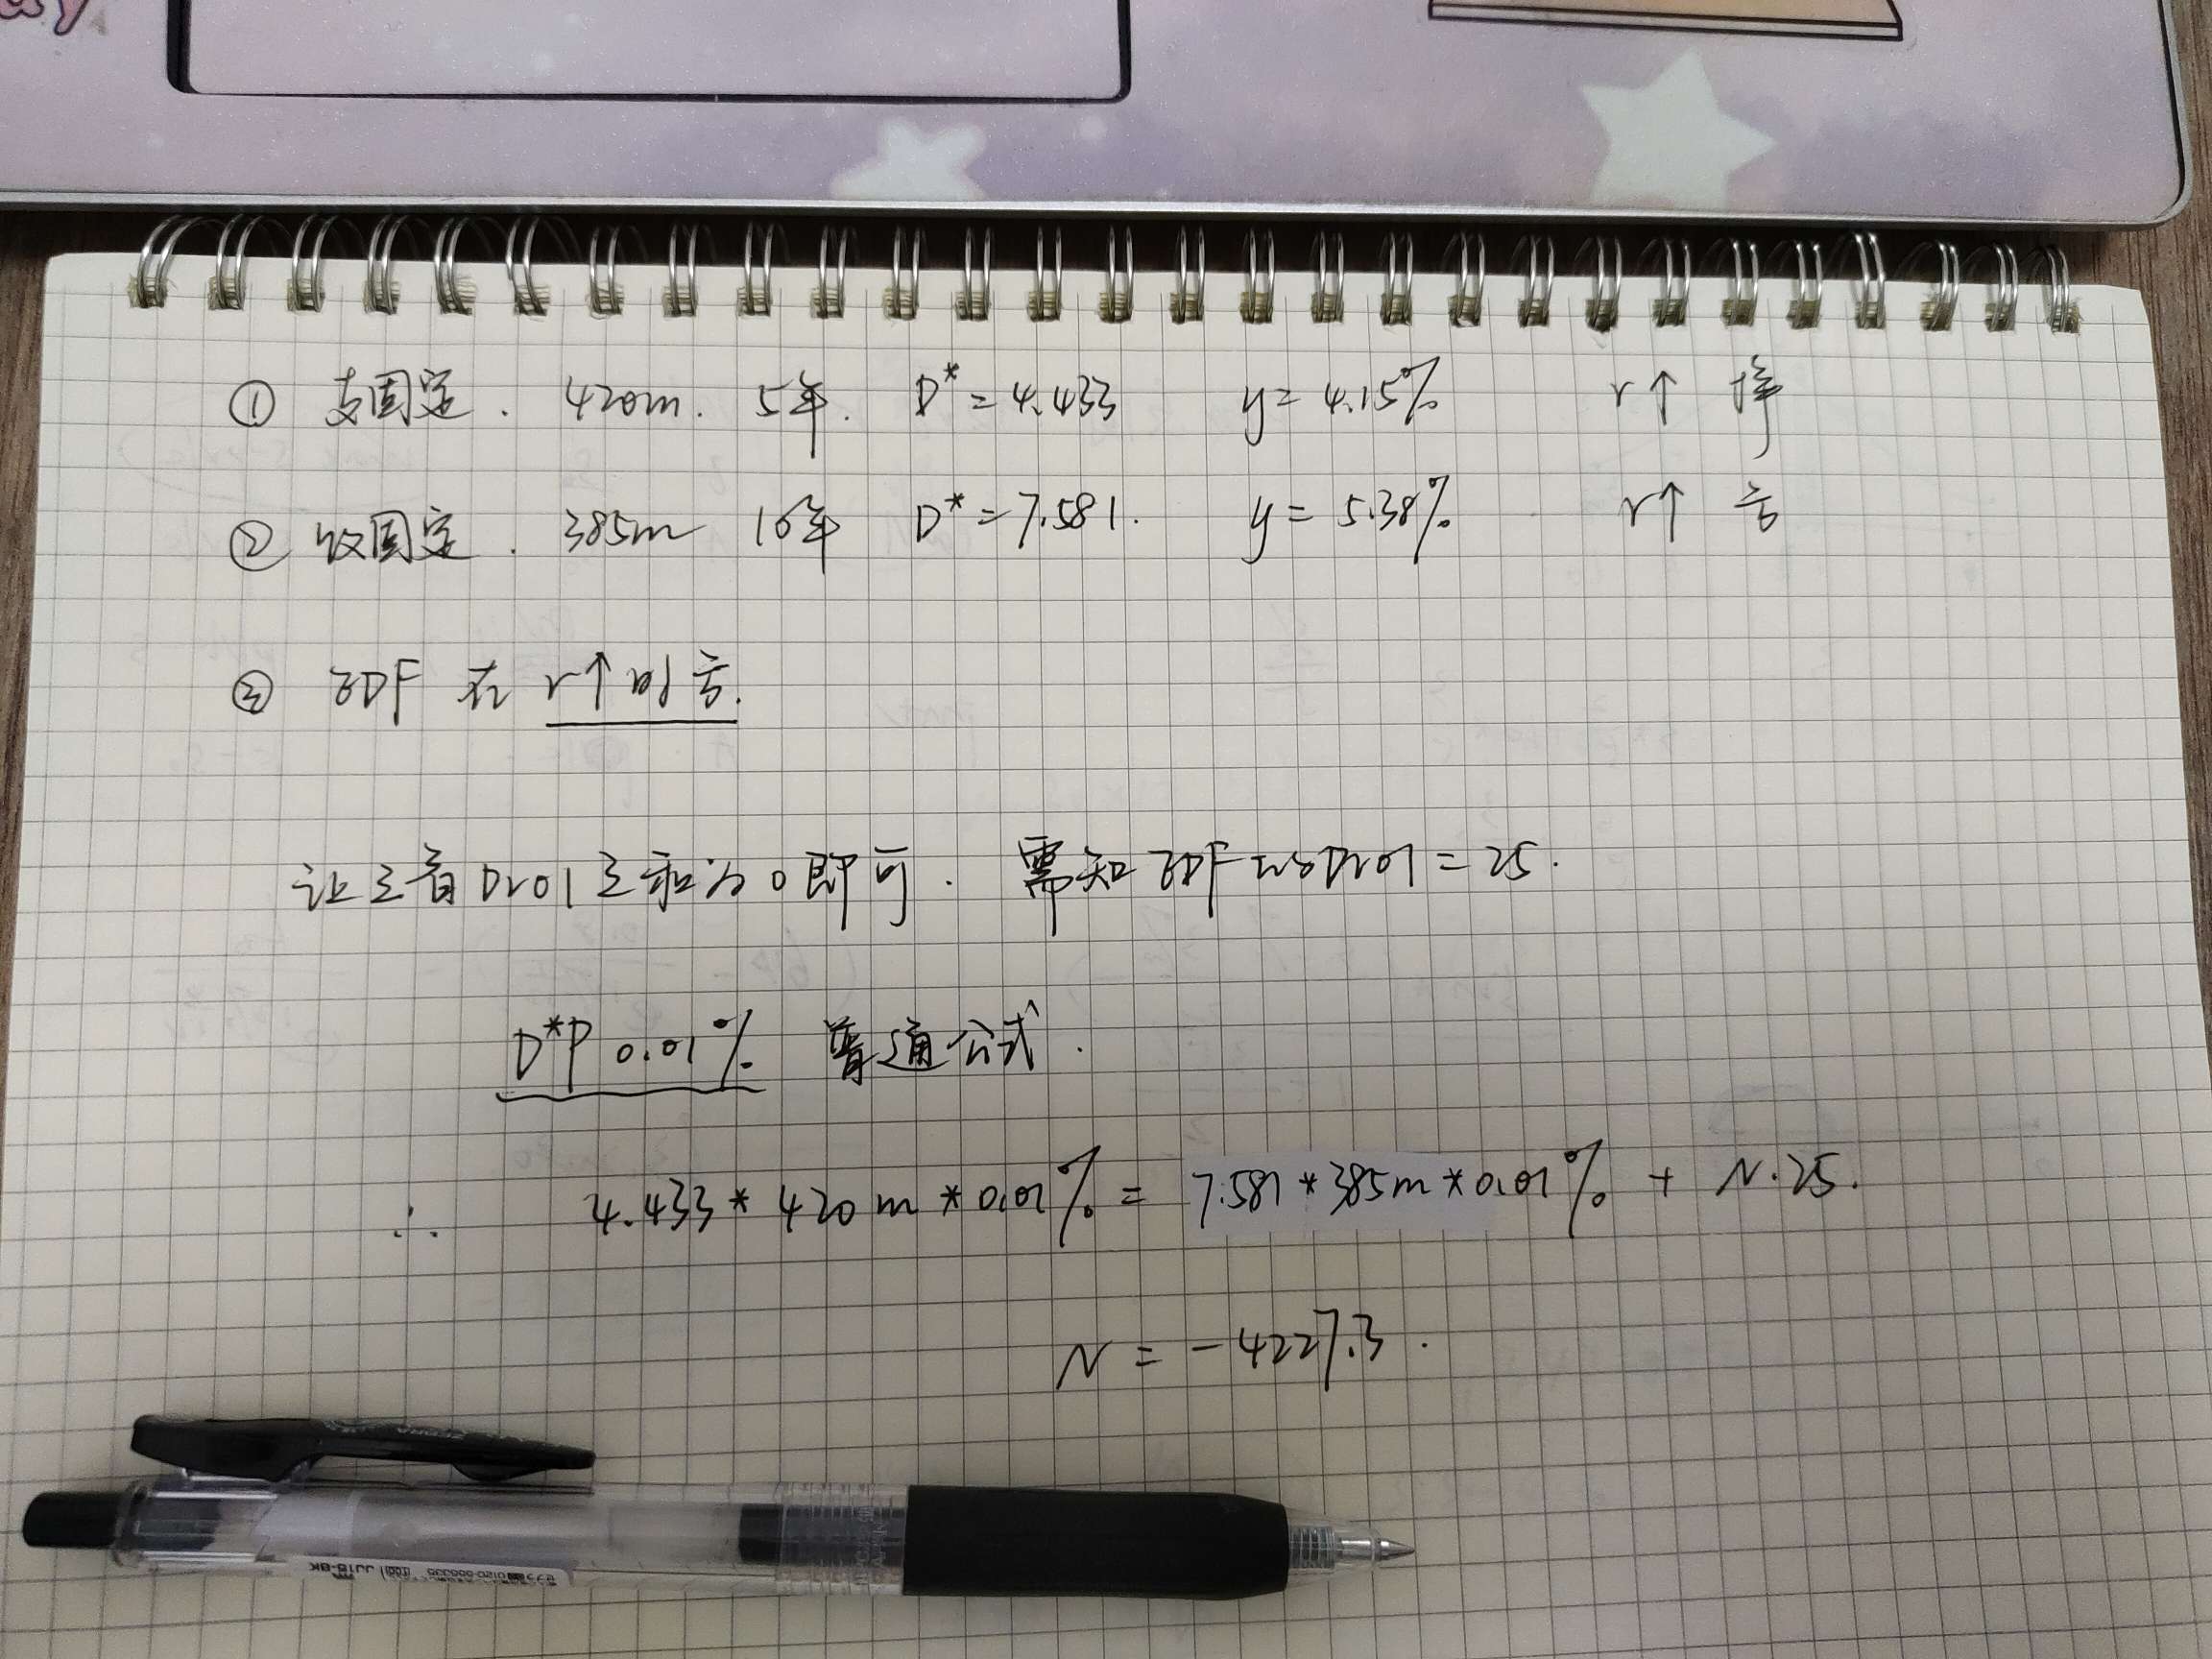 ① 支固定. 420m. 5年. D* = 4.433 y = 4.15% r↑ 挣
② 收固定. 385m 10年 D* = 7.581. y = 5.38% r↑ 亏
③ EDF 在 r↑时亏.
让三者Dv01之和为0即可. 需知EDF的Dv01 = 25.
D*P 0.01% 普通公式.
∴ 4.433 * 420m * 0.01% = 7.581 * 385m * 0.01% + N·25.
N = -4227.3.